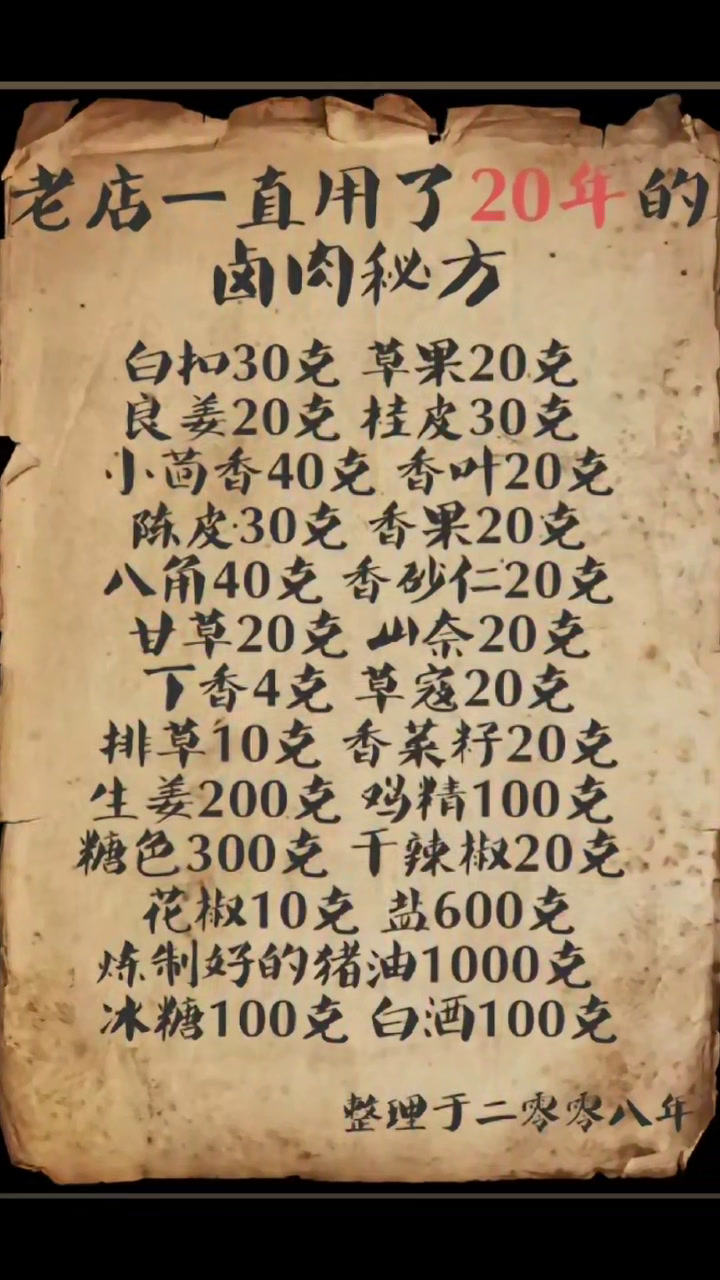 老店一直用了20年的
卤肉秘方
白扣30克 草果20克
良姜20克 桂皮30克
小茴香40克 香叶20克
陈皮30克 香果20克
八角40克 香砂仁20克
甘草20克 山奈20克
丁香4克 草寇20克
排草10克 香菜籽20克
生姜200克 鸡精100克
糖色300克 干辣椒20克
花椒10克 盐600克
炼制好的猪油1000克
冰糖100克 白酒100克
整理于二零零八年